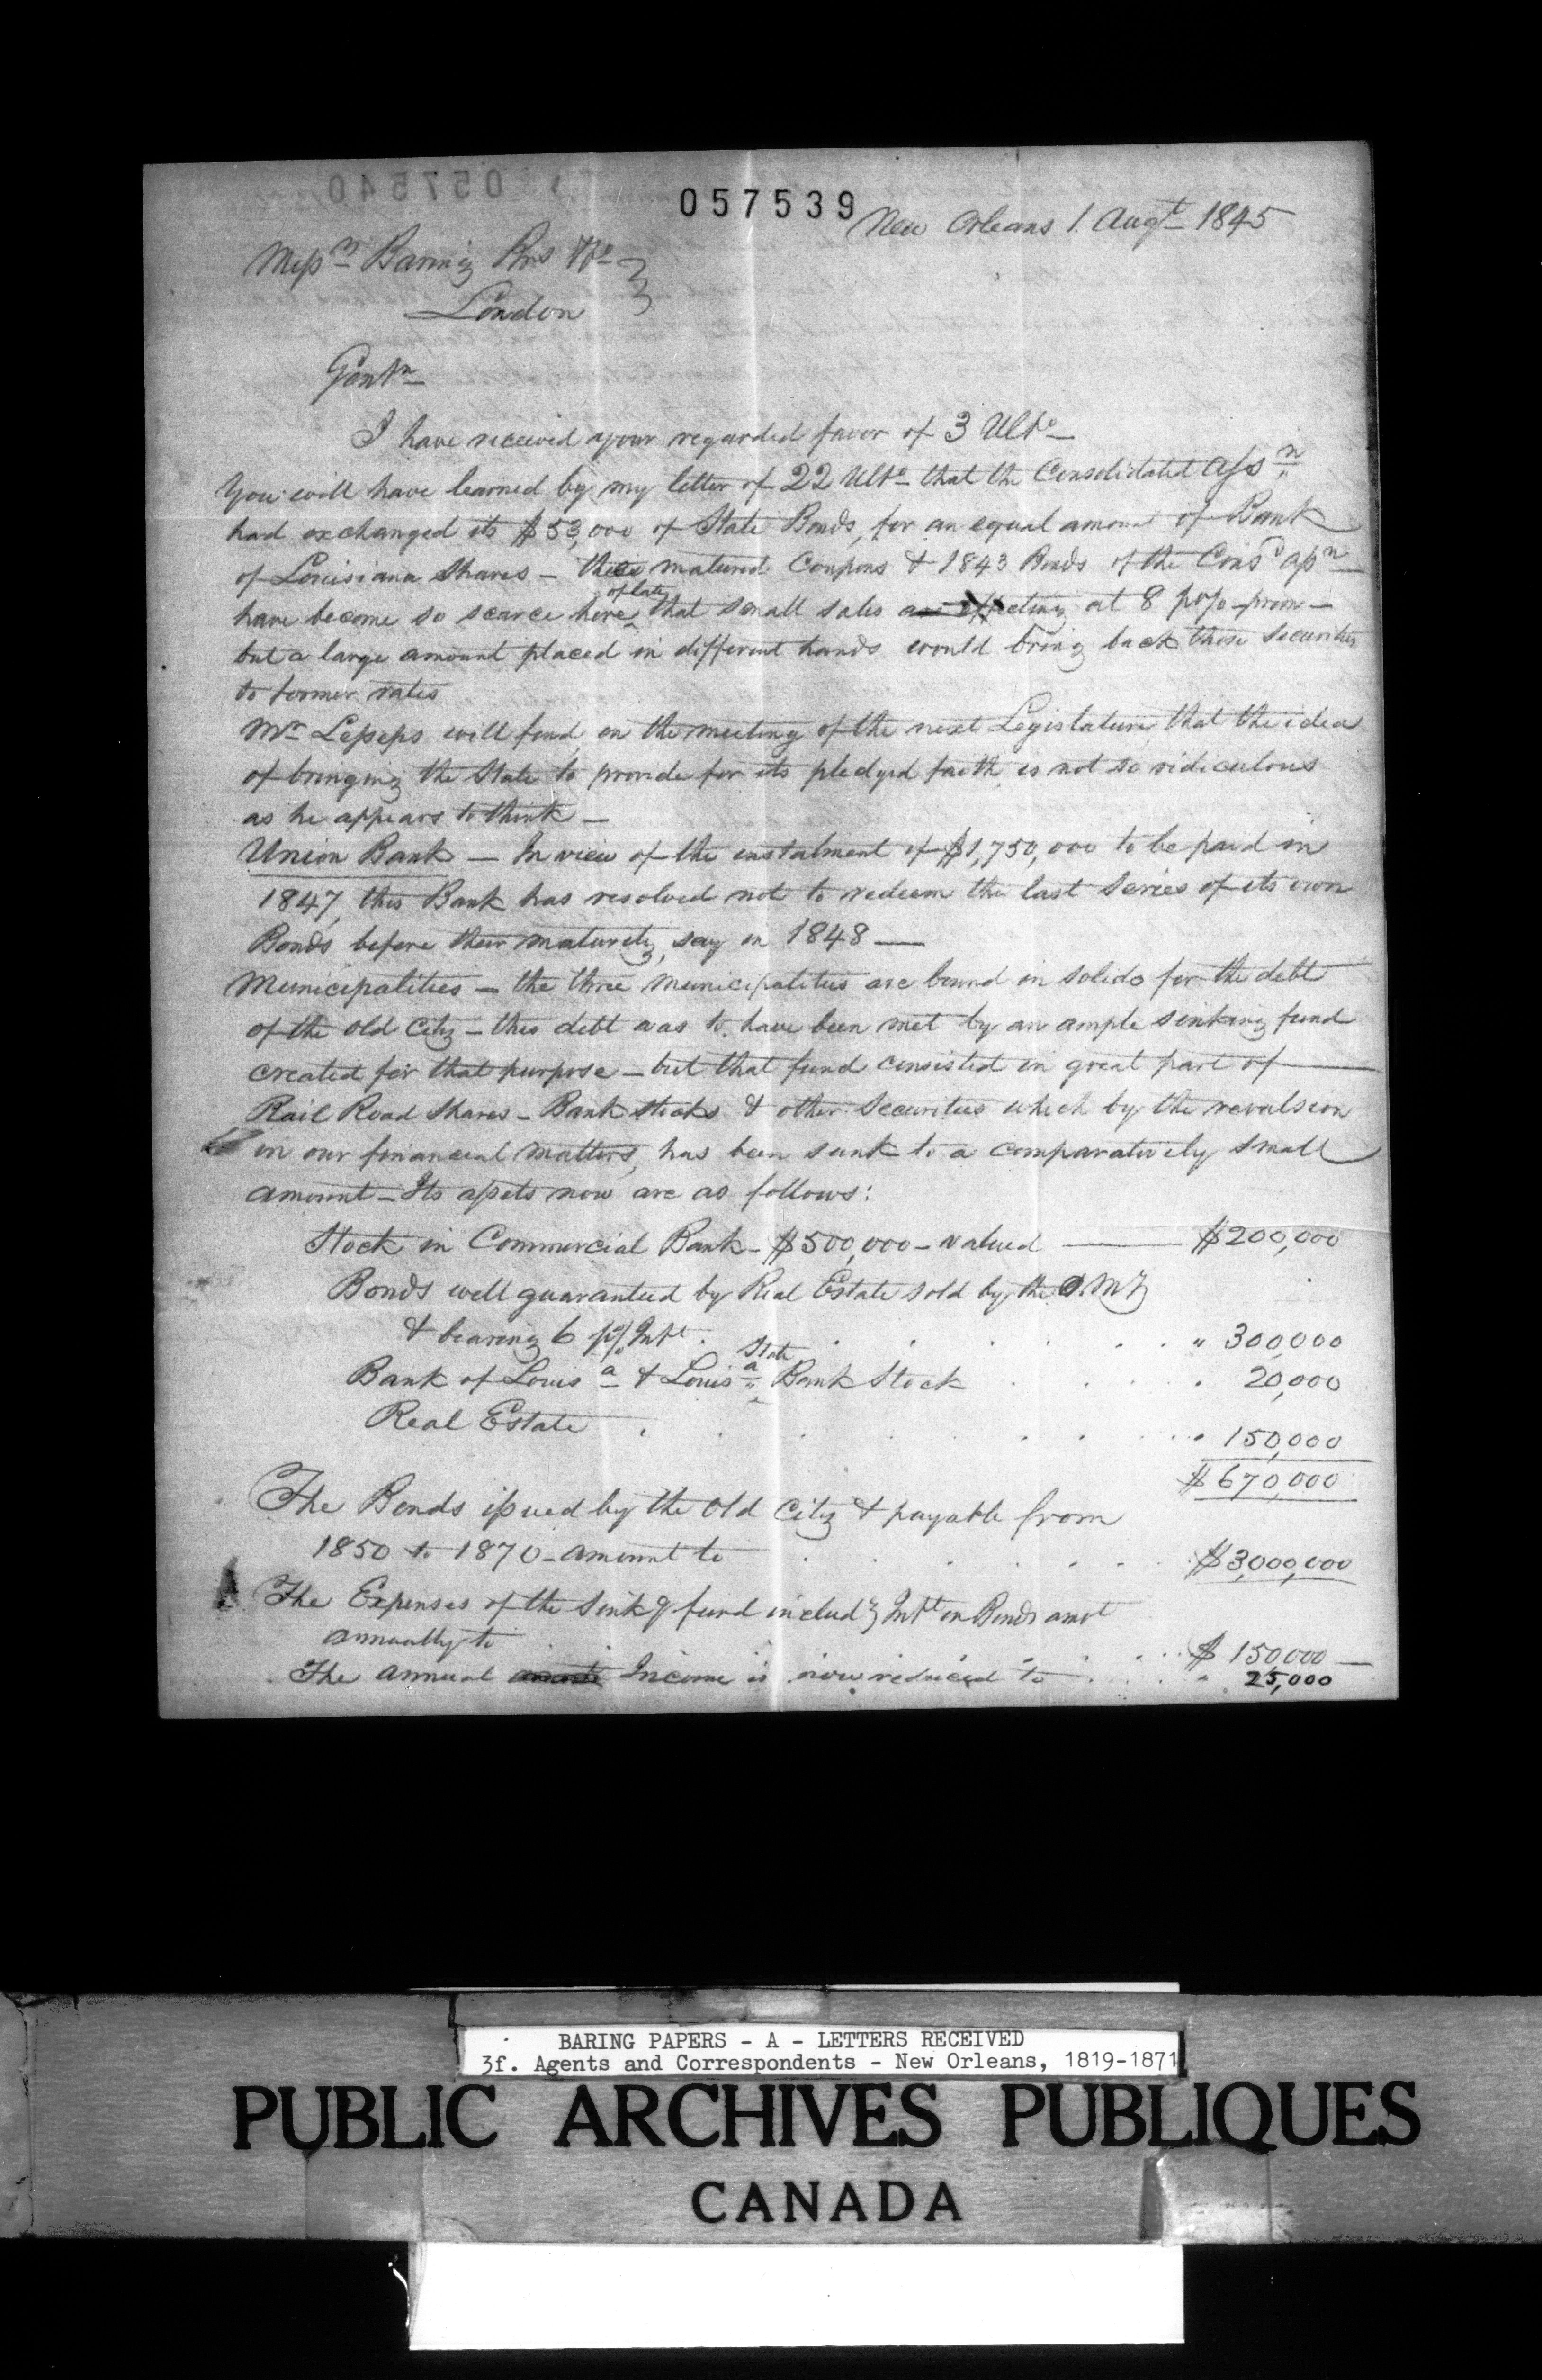 057539
New Orleans 1. Augt 1845
Messrs Baring Bros & Co
London
Gentn
I have received your regarded favor of 3 Ulto
You will have learned by my letter of 22 Ulto that the Consolidated Assn
had exchanged its $53,000 of State Bonds, for an equal amount of Bank
of Louisiana Shares - the matured Coupons & 1843 Bonds of the Consd Assn
have become so scarce here of late that small sales are effecting at 8 p% prem -
but a large amount placed in different hands would bring back those Securities
to former rates
Mr Lesseps will find on the meeting of the next Legislature, that the idea
of bringing the State to provide for its pledged faith, is not so ridiculous
as he appears to think -
Union Bank - In view of the instalment of $1,750,000 to be paid in
1847, this Bank has resolved not to redeem the last Series of its own
Bonds before their maturity, say in 1848 -
Municipalities - the three Municipalities are bound in solido for the debt
of the old City - this debt was to have been met by an ample sinking fund
created for that purpose - but that fund consisted in great part of
Rail Road Shares - Bank stocks & other Securities which by the revulsion
in our financial matters, has been sunk to a comparatively small
amount - Its assets now are as follows:
Stock in Commercial Bank - $500,000 - valued $200,000
Bonds well guaranteed by Real Estate sold by the
& bearing 6 p% Intt . . . . . " 300,000
Bank of Louisa & Louisa State Bank Stock . . . . 20,000
Real Estate . . . . . . " 150,000
$670,000
The Bonds issued by the Old City & payable from
1850 to 1870 - amount to . . . . . $3,000,000
The Expenses of the Sinkg fund includg Intt on Bonds amot
annually to . . . . . $150,000
The annual Income is now reduced to . . . . " 25,000
BARING PAPERS - A - LETTERS RECEIVED
3f. Agents and Correspondents - New Orleans, 1819-1871
PUBLIC ARCHIVES PUBLIQUES
CANADA